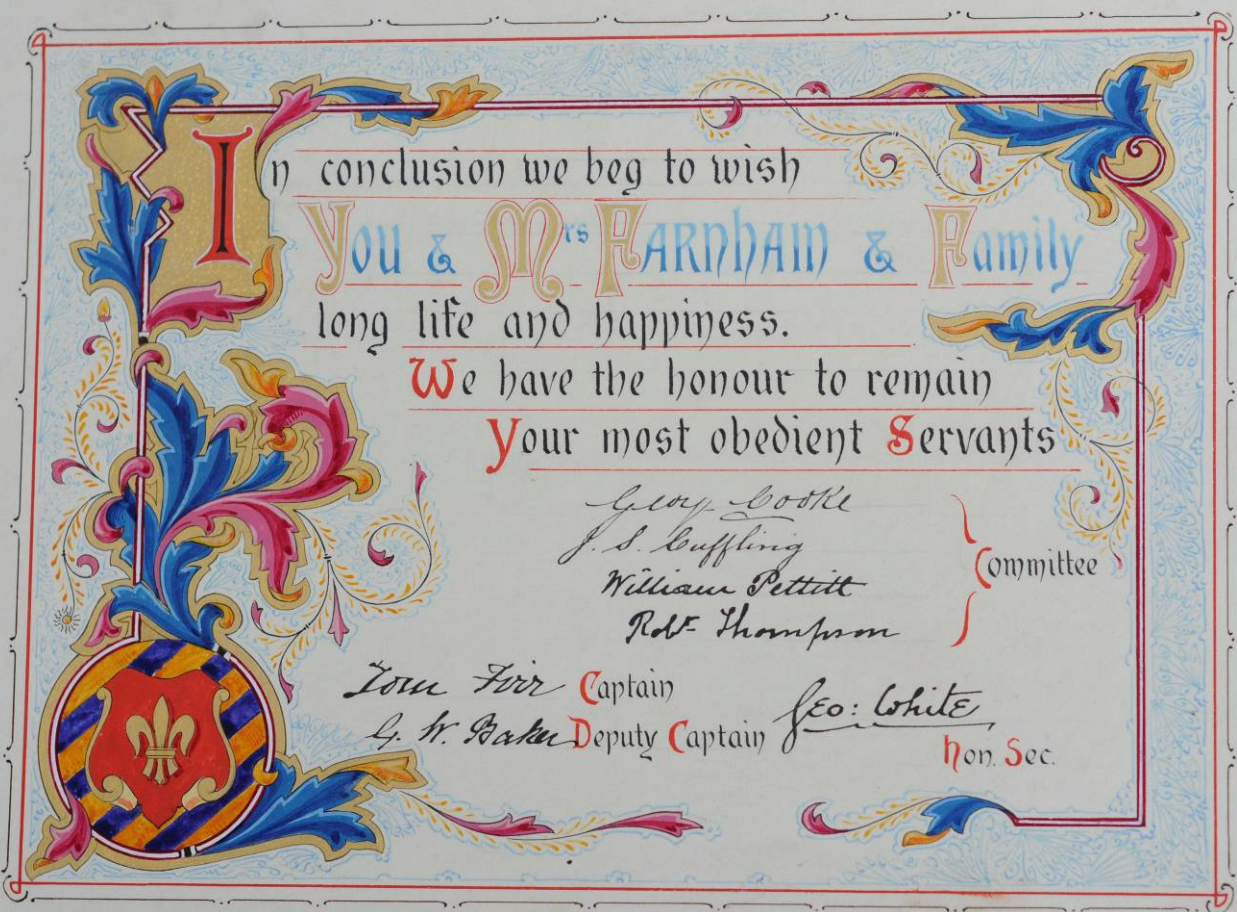 In conclusion we beg to wish
You & Mrs FARNHAM & Family
long life and happiness.
We have the honour to remain
Your most obedient Servants
Cooke
J. S. Cuffling
William Pettitt
Robt Thompson
Committee
Tom Firr Captain
G. W. Baker Deputy Captain
Geo: White
Hon. Sec.